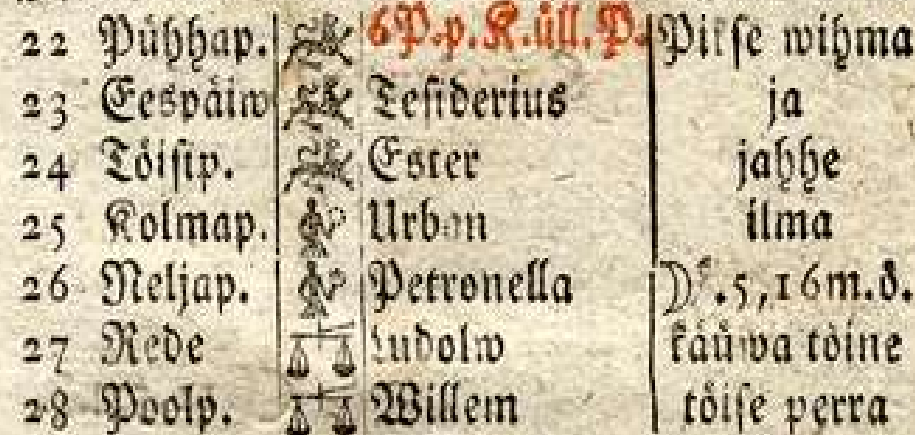 22 Pühhap. 6 P. p. K. üll. P. Pikse wihma
23 Eespäiw Tesiderius ja
24 Töisip. Ester jahhe
25 Kolmap. Urban ilma
26 Neljap. Petronella ☽ k. 5, 16 m. ö.
27 Rede Ludolw käüwa töine
28 Poolp. Willem töise perra